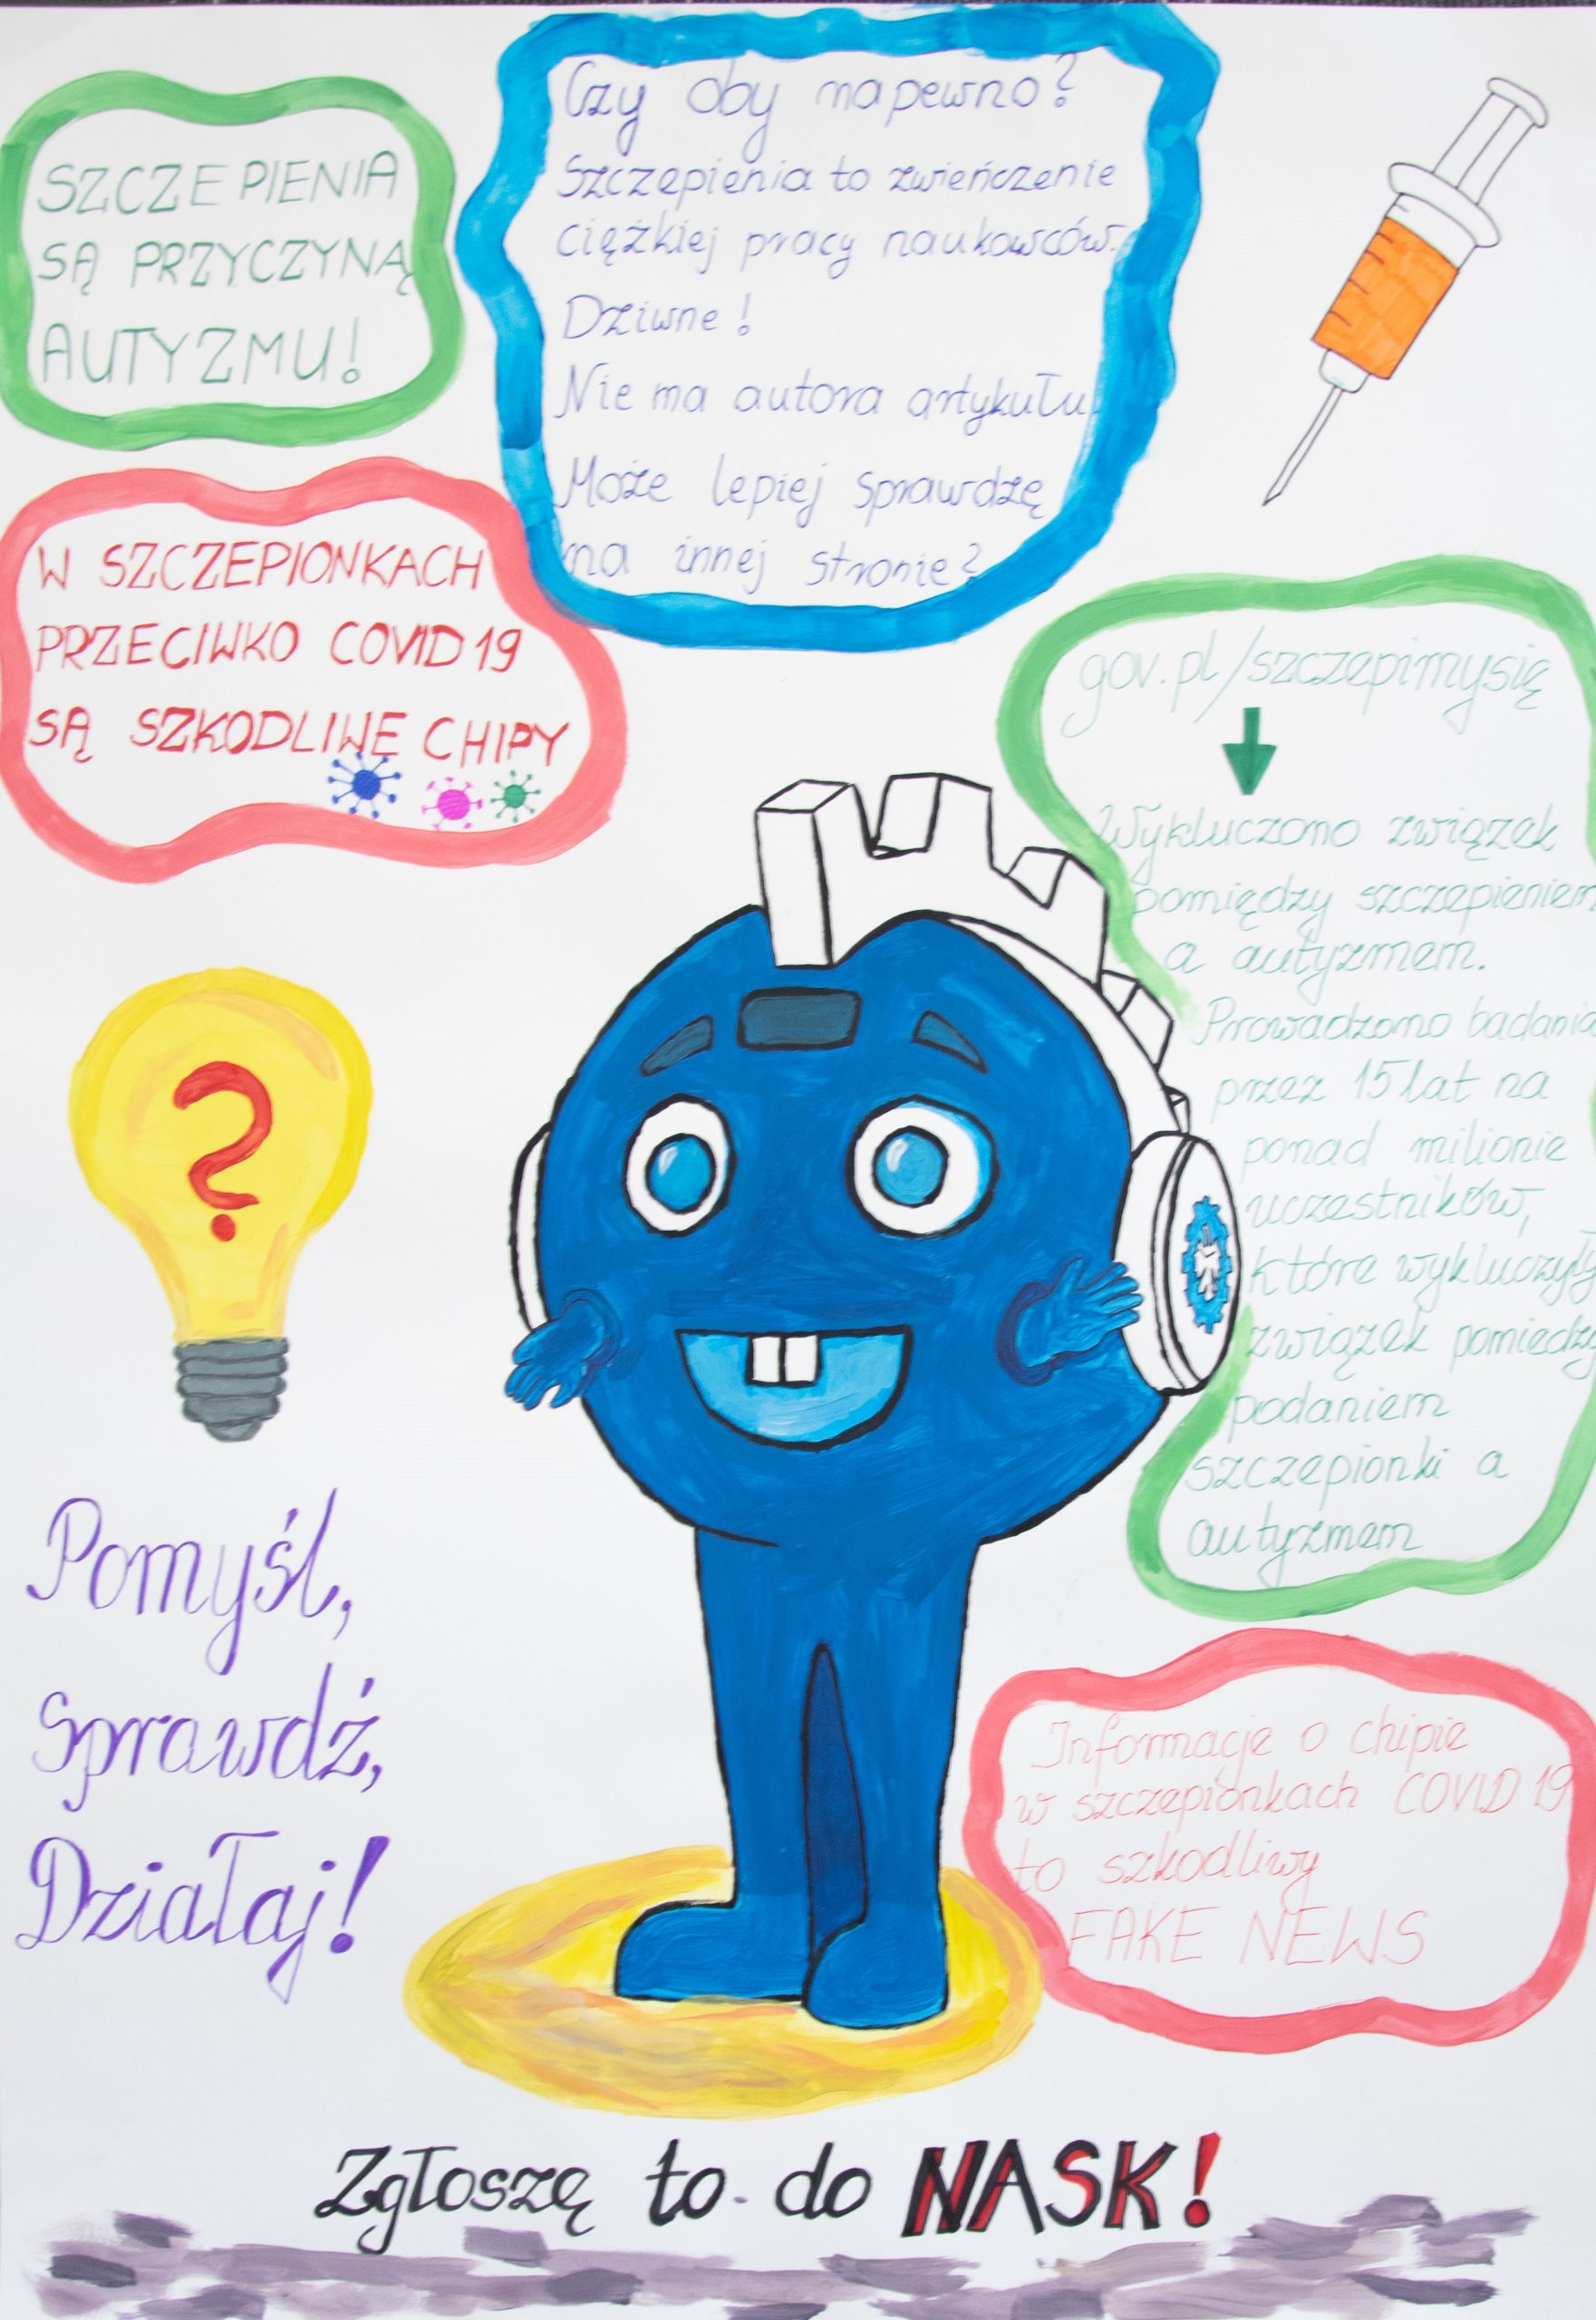 SZCZEPIENIA
SĄ PRZYCZYNĄ
AUTYZMU!
Czy aby napewno?
Szczepienia to zwieńczenie
ciężkiej pracy naukowców.
Dziwne!
Nie ma autora artykułu
Może lepiej sprawdzę
na innej stronie?
W SZCZEPIONKACH
PRZECIWKO COVID 19
SĄ SZKODLIWE CHIPY
gov.pl/szczepimysię
Wykluczono związek
pomiędzy szczepieniem
a autyzmem.
Prowadzono badania
przez 15 lat na
ponad milionie
uczestników,
które wykluczyły
związek pomiędzy
podaniem
szczepionki a
autyzmem
?
Pomyśl,
sprawdź,
Działaj!
Informacje o chipie
w szczepionkach COVID 19
to szkodliwy
FAKE NEWS
Zgłoszę to do NASK!